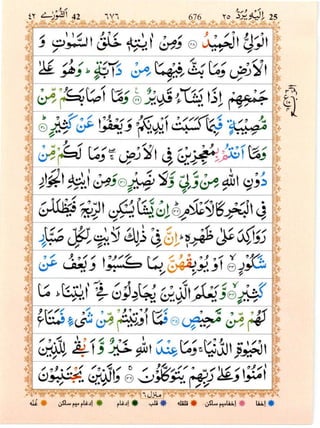 ٤٢ اَلشُّوْرٰى 42 ٦٧٦ 676 ٢٥ اِلَيْهِ يُرَدُّ 25
الْوَلِيُّ الْحَمِيْدُ ﴿٢٨﴾ وَمِنْ اٰيٰتِهٖ خَلْقُ السَّمٰوٰتِ وَ
الْاَرْضِ وَمَا بَثَّ فِيْهِمَا مِنْ دَآبَّةٍ ؕ وَهُوَ عَلٰى
جَمْعِهِمْ اِذَا يَشَآءُ قَدِيْرٌ ﴿٢٩﴾ وَمَاۤ اَصَابَكُمْ مِّنْ
مُّصِيْبَةٍ فَبِمَا كَسَبَتْ اَيْدِيْكُمْ وَيَعْفُوْا عَنْ كَثِيْرٍ ﴿٣٠﴾
وَمَاۤ اَنْتُمْ بِمُعْجِزِيْنَ فِى الْاَرْضِ ۖۚ وَمَا لَكُمْ مِّنْ
دُوْنِ اللّٰهِ مِنْ وَّلِيٍّ وَّلَا نَصِيْرٍ ﴿٣١﴾ وَمِنْ اٰيٰتِهِ الْجَوَارِ
فِى الْبَحْرِ كَالْاَعْلَامِ ﴿٣٢﴾ اِنْ يَّشَاْ يُسْكِنِ الرِّيْحَ فَيَظْلَلْنَ
رَوَاكِدَ عَلٰى ظَهْرِهٖ ؕ اِنَّ فِيْ ذٰلِكَ لَاٰيٰتٍ لِّكُلِّ صَبَّارٍ
شَكُوْرٍ ﴿٣٣﴾ اَوْ يُوْبِقْهُنَّ بِمَا كَسَبُوْا وَيَعْفُ عَنْ
كَثِيْرٍ ﴿٣٤﴾ وَّيَعْلَمَ الَّذِيْنَ يُجَادِلُوْنَ فِيْۤ اٰيٰتِنَا ؕ مَا
لَهُمْ مِّنْ مَّحِيْصٍ ﴿٣٥﴾ فَمَاۤ اُوْتِيْتُمْ مِّنْ شَيْءٍ فَمَتَاعُ
الْحَيٰوةِ الدُّنْيَا ۚ وَمَا عِنْدَ اللّٰهِ خَيْرٌ وَّاَبْقٰى لِلَّذِيْنَ
اٰمَنُوْا وَعَلٰى رَبِّهِمْ يَتَوَكَّلُوْنَ ﴿٣٦﴾ وَالَّذِيْنَ يَجْتَنِبُوْنَ
منزل ٦
اخفا اخفا میم ساکن قلقلہ قلب ادغام ادغام میم ساکن غنّہ